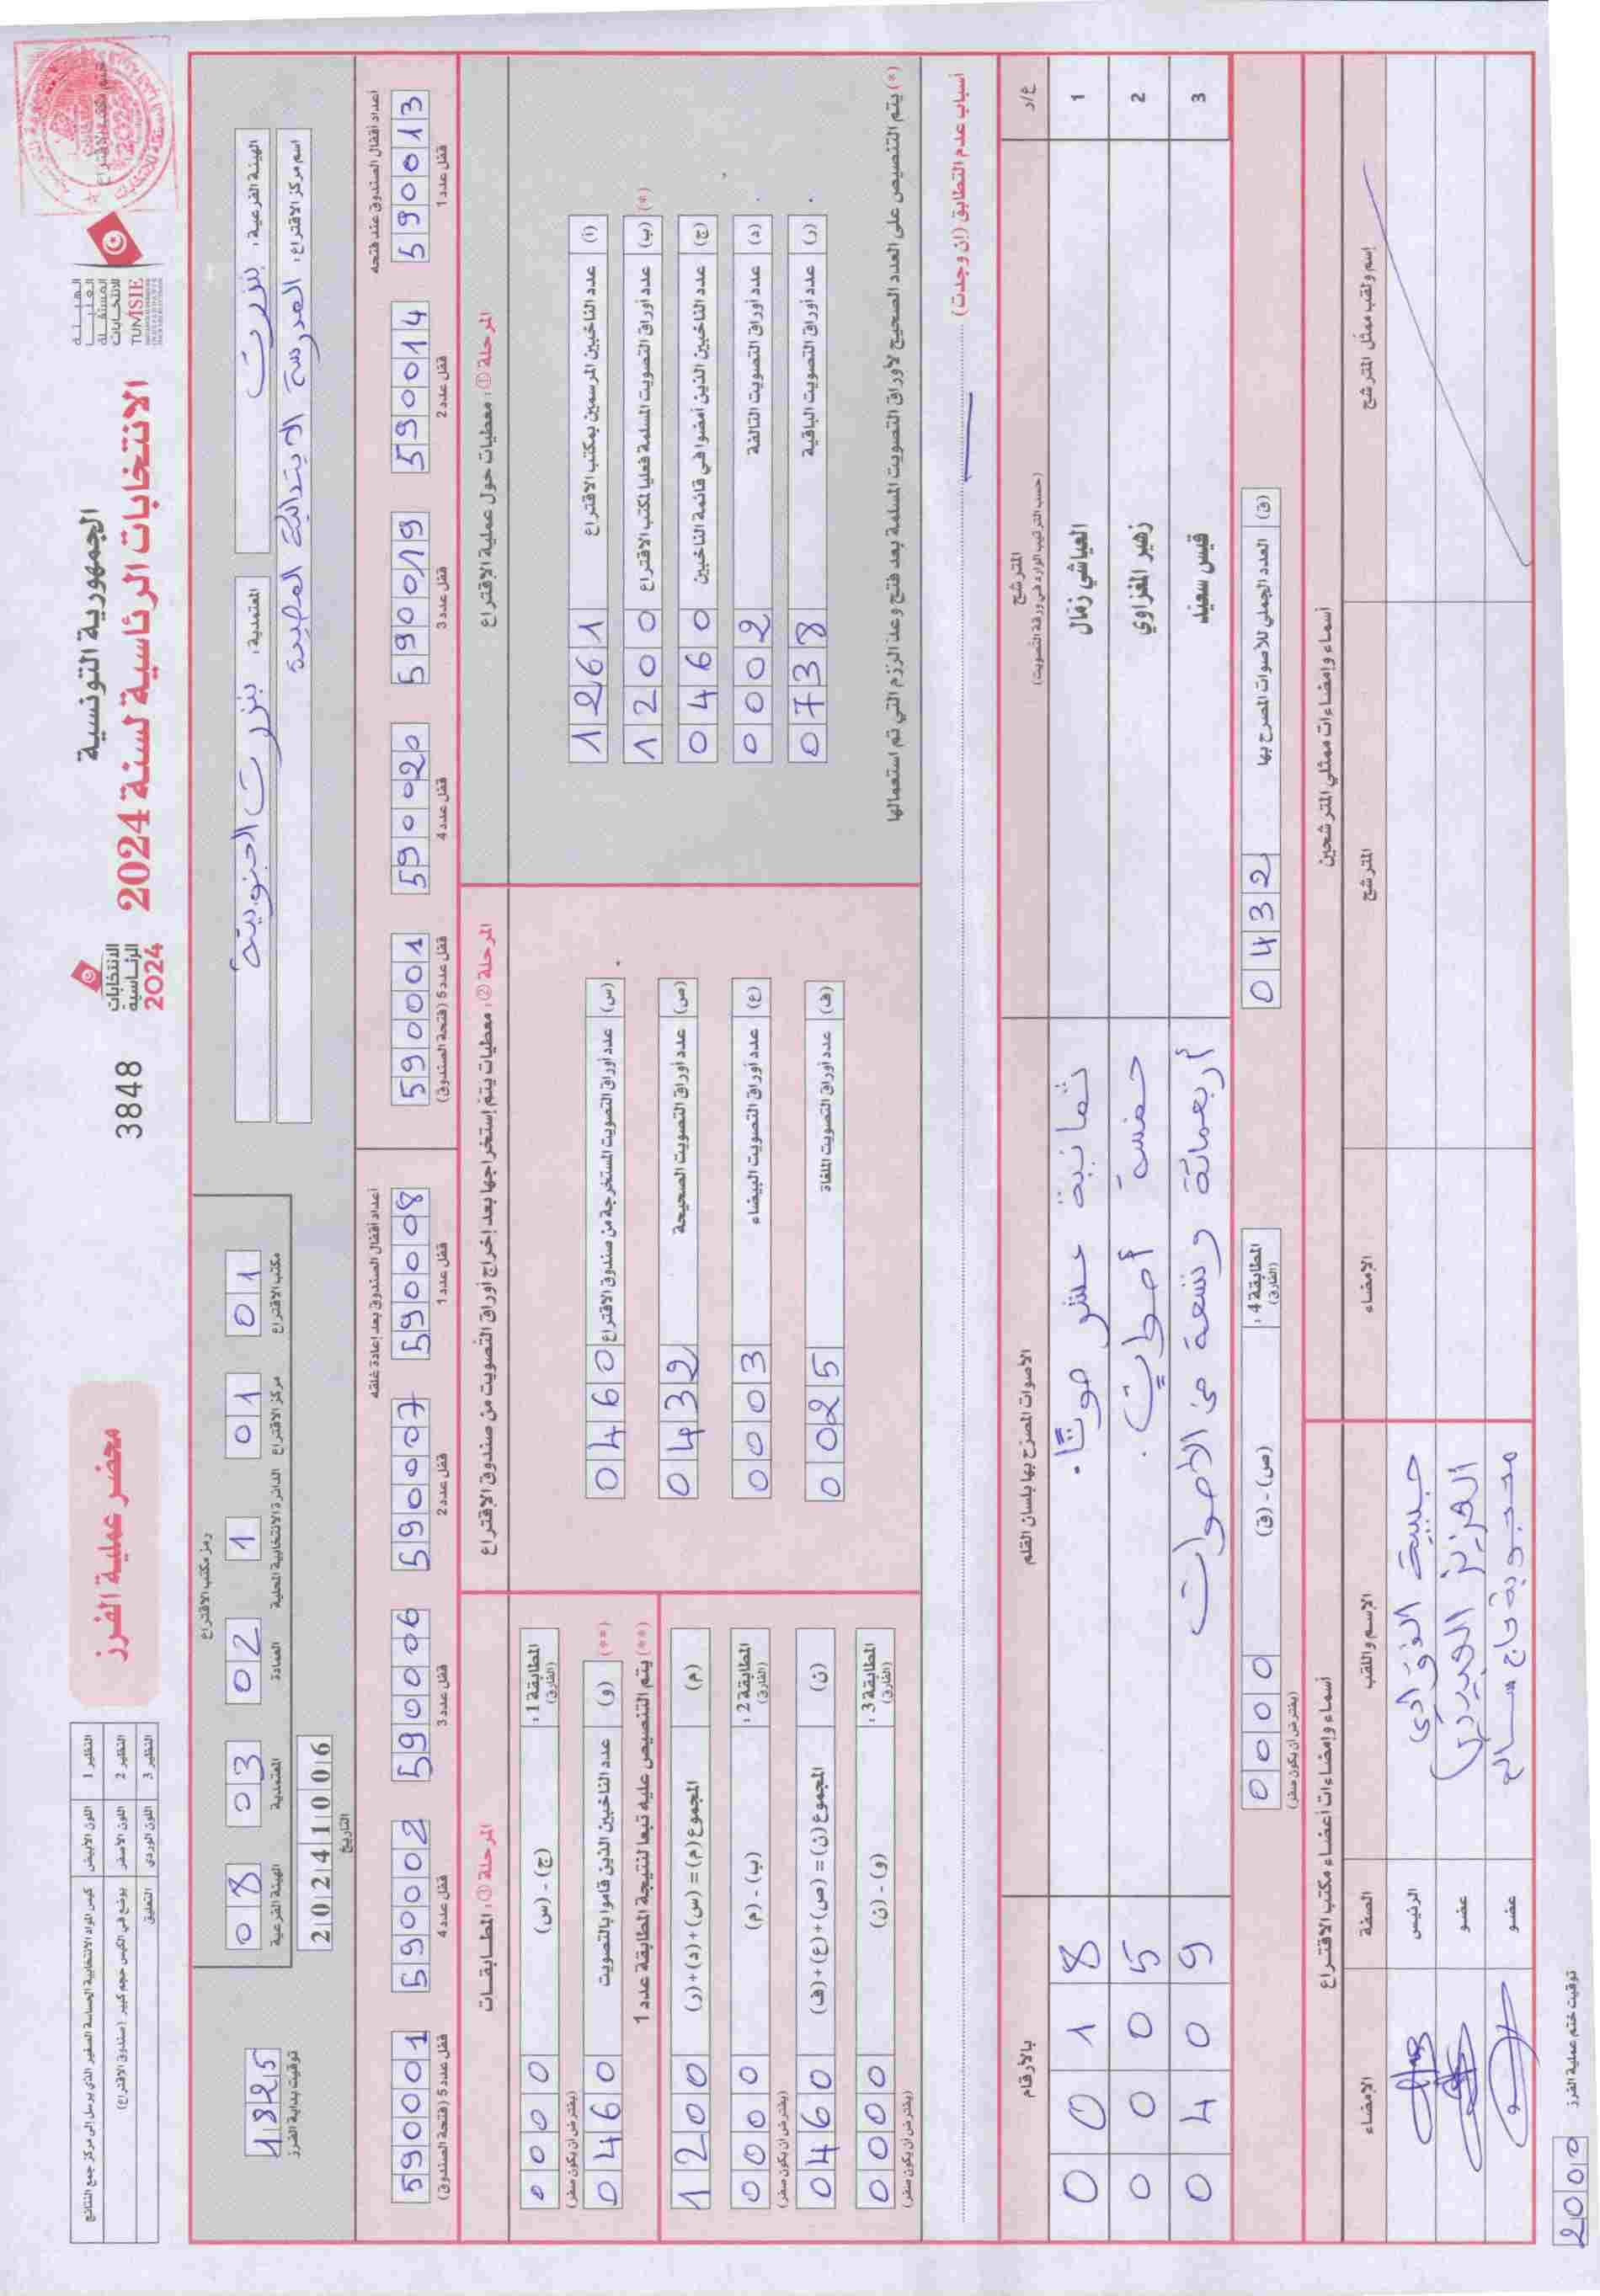 الجمهورية التونسية
الانتخابات الرئاسية لسنة 2024
الهيئة
العليا
المستقلة
للانتخابات
TUNISIE
الانتخابات
الرئاسية
2024
3848
محضر عملية الفرز
النظير 1 اللون الأبيض كيس المواد الانتخابية الحساسة الصغير الذي يرسل إلى مركز جمع النتائج
النظير 2 اللون الأصفر يوضع في الكيس حجم كبير (صندوق الاقتراع)
النظير 3 اللون الوردي التعليق
الهيئة الفرعية: بنزرت
المعتمدية: بنزرت الجنوبية
اسم مركز الاقتراع: المدرسة الابتدائية المصيدة
رمز مكتب الاقتراع
مكتب الاقتراع 01
مركز الاقتراع 01
الدائرة الانتخابية المحلية 1
العمادة 02
المعتمدية 03
الهيئة الفرعية 08
التاريخ 20241006
توقيت بداية الفرز 1825
أعداد أقفال الصندوق عند فتحه
قفل عدد 1 590013
قفل عدد 2 590014
قفل عدد 3 590019
قفل عدد 4 590020
قفل عدد 5 (فتحة الصندوق) 590001
أعداد أقفال الصندوق بعد إعادة غلقه
قفل عدد 1 590008
قفل عدد 2 590007
قفل عدد 3 590006
قفل عدد 4 590002
قفل عدد 5 (فتحة الصندوق) 590001
المرحلة ①: معطيات حول عملية الاقتراع
(أ) عدد الناخبين المرسمين بمكتب الاقتراع 1261
(*) (ب) عدد أوراق التصويت المسلمة فعليا لمكتب الاقتراع 1200
(ج) عدد الناخبين الذين أمضوا في قائمة الناخبين 0460
(د) عدد أوراق التصويت التالفة 0002
(ر) عدد أوراق التصويت الباقية 0738
(*) يتم التنصيص على العدد الصحيح لأوراق التصويت المسلمة بعد فتح وعد الرزم التي تم استعمالها
المرحلة ②: معطيات يتم إستخراجها بعد إخراج أوراق التصويت من صندوق الاقتراع
(س) عدد أوراق التصويت المستخرجة من صندوق الاقتراع 0460
(ص) عدد أوراق التصويت الصحيحة 0432
(ع) عدد أوراق التصويت البيضاء 0003
(ف) عدد أوراق التصويت الملغاة 0025
المرحلة ③: المطابقات
المطابقة 1: (الفارق) (ج) - (س) 0000
(يفترض أن يكون صفر)
(**) (و) عدد الناخبين الذين قاموا بالتصويت 0460
(**) يتم التنصيص عليه تبعا لنتيجة المطابقة عدد 1
(م) المجموع (م) = (س) + (د) + (ر) 1200
المطابقة 2: (الفارق) (ب) - (م) 0000
(يفترض أن يكون صفر)
(ن) المجموع (ن) = (ص) + (ع) + (ف) 0460
المطابقة 3: (الفارق) (و) - (ن) 0000
(يفترض أن يكون صفر)
أسباب عدم التطابق (إن وجدت)
ع/ر المترشح (حسب الترتيب الوارد في ورقة التصويت) الأصوات المصرح بها بلسان القلم بالأرقام
1 العياشي زمال ثمانية عشر صوتا. 0018
2 زهير المغزاوي خمسة أصوات. 0005
3 قيس سعيد أربعمائة وتسعة من الاصوات 0409
(ق) العدد الجملي للأصوات المصرح بها 0432
المطابقة 4: (الفارق) (ص) - (ق) 0000
(يفترض أن يكون صفر)
أسماء وإمضاءات ممثلي المترشحين
إسم ولقب ممثل المترشح المترشح الإمضاء
أسماء وإمضاءات أعضاء مكتب الاقتراع
الإسم واللقب الصفة الإمضاء
الرئيس
عضو
عضو
توقيت ختم عملية الفرز 2000